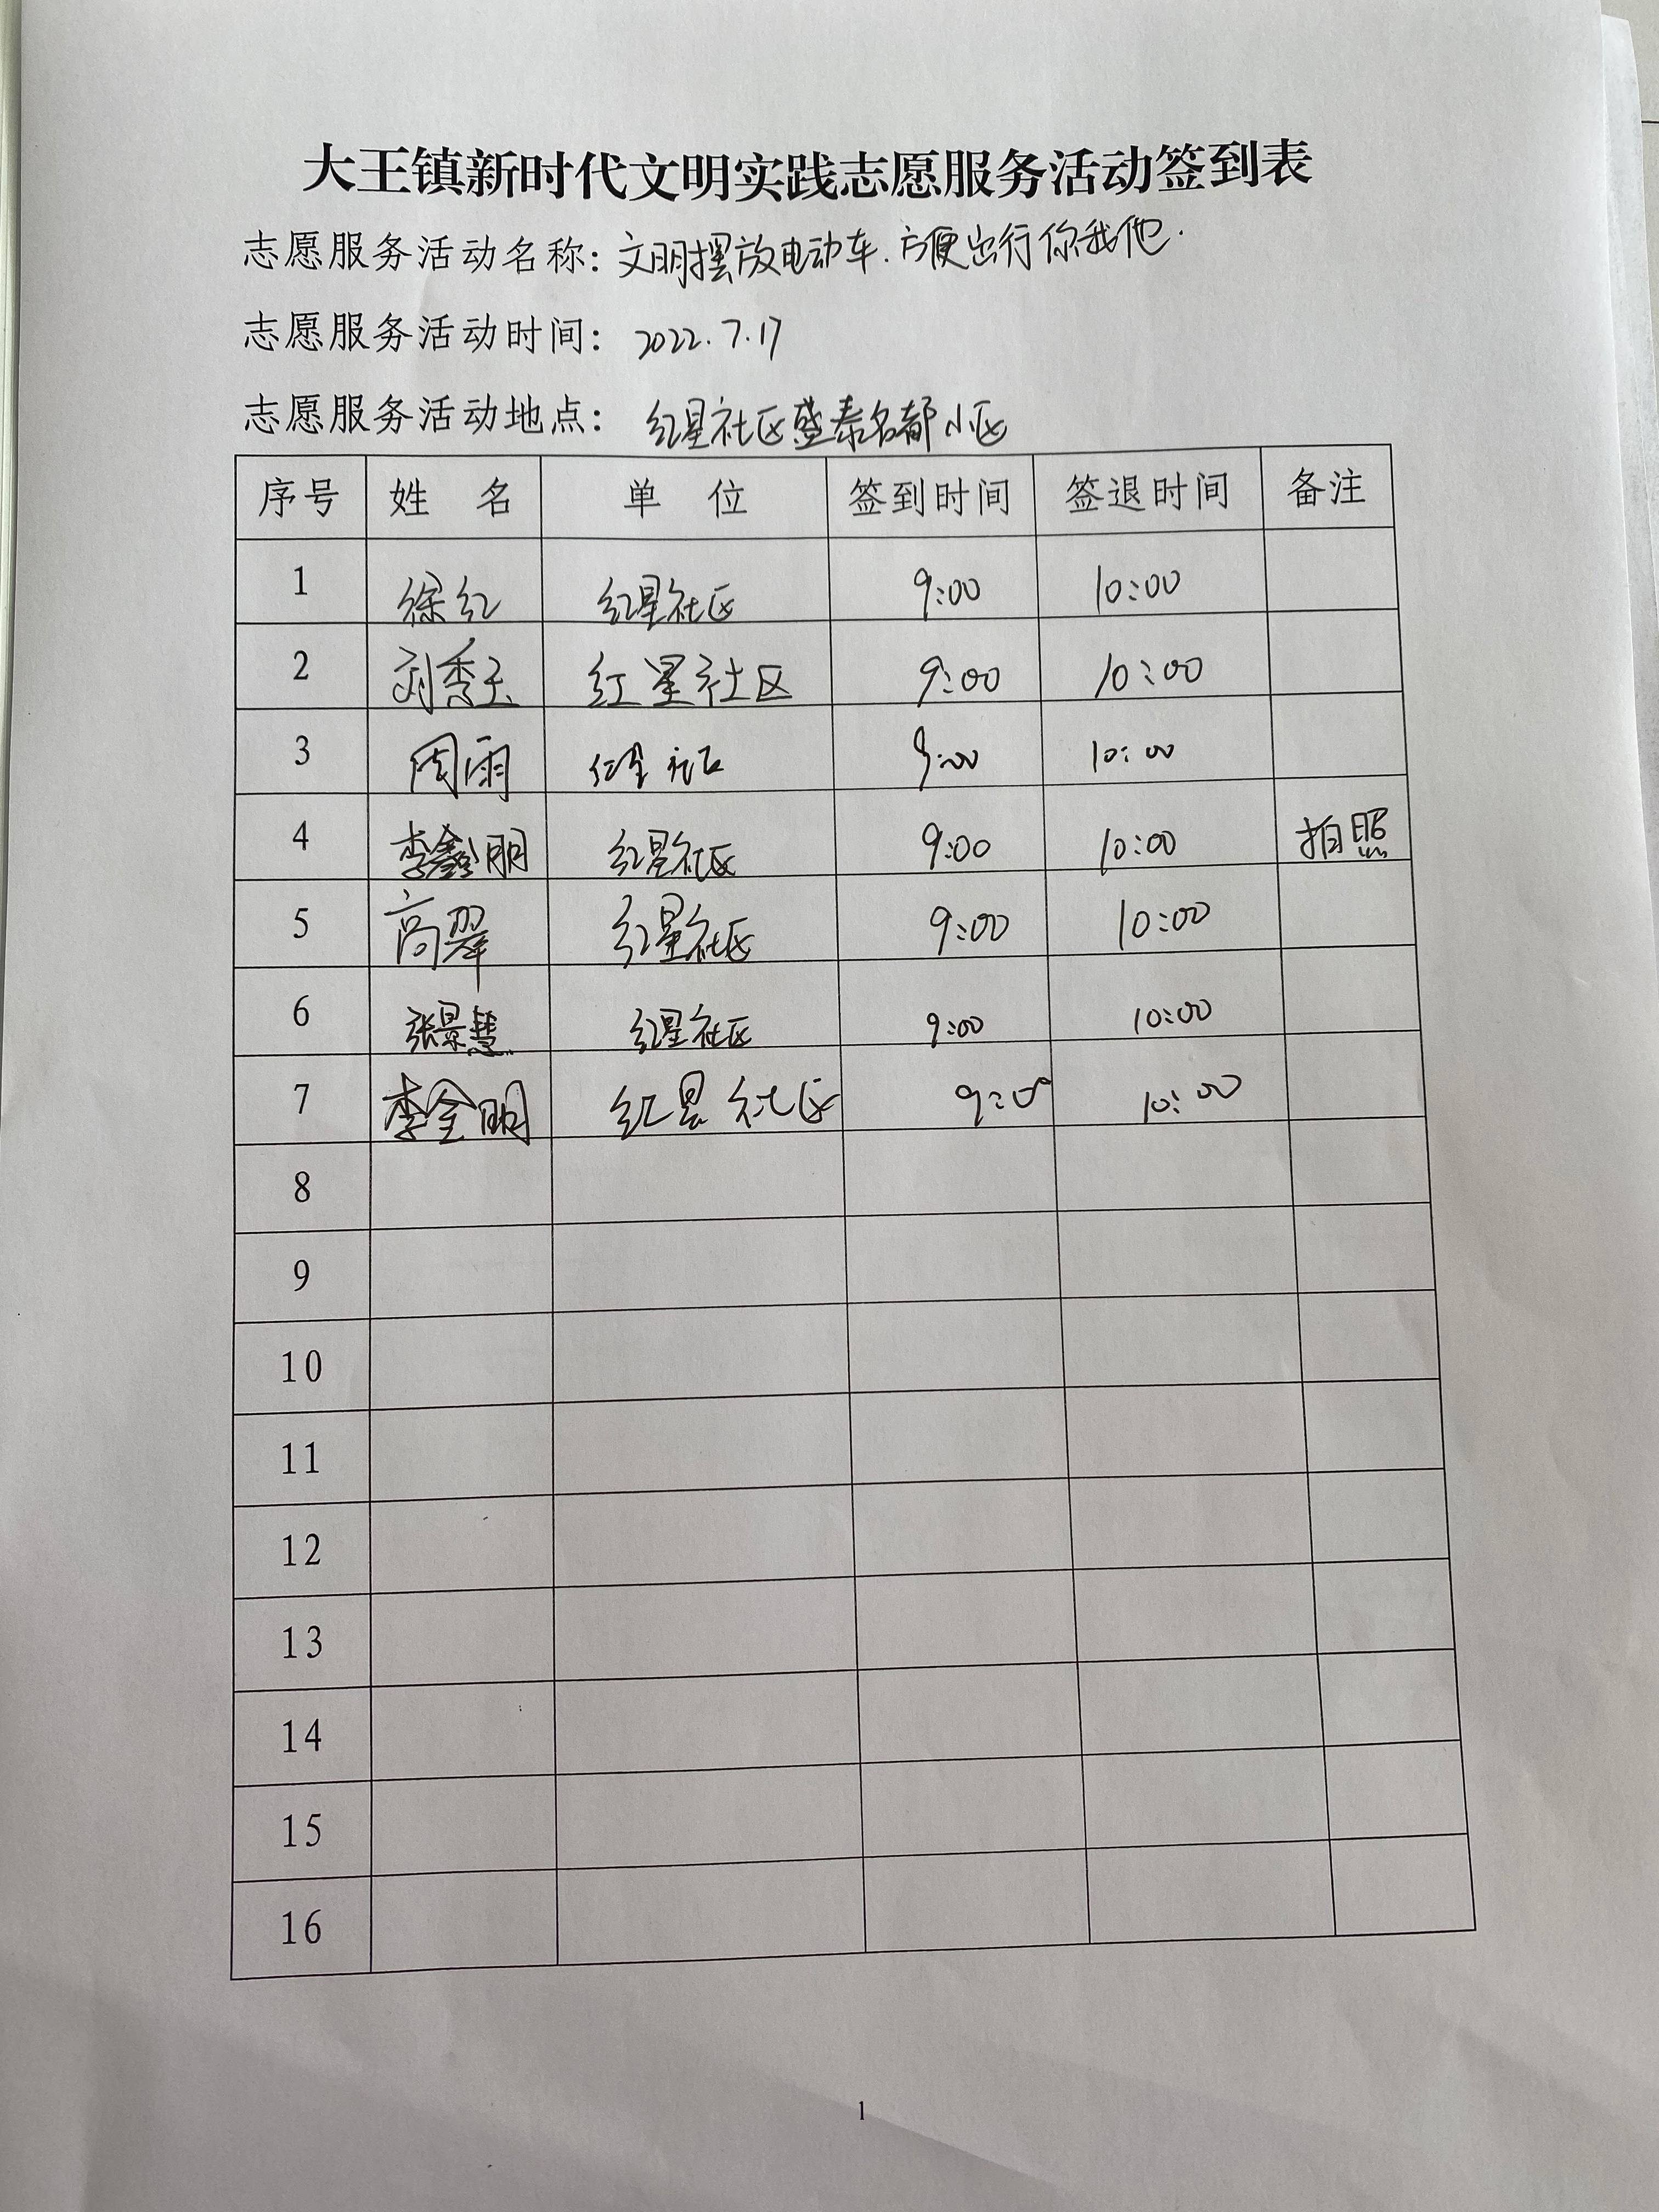 大王镇新时代文明实践志愿服务活动签到表
志愿服务活动名称：文明摆放电动车.方便出行你我他.
志愿服务活动时间：2022.7.17
志愿服务活动地点：红星社区盛泰名都小区
序号 姓名 单位 签到时间 签退时间 备注
1 徐红 红星社区 9:00 10:00
2 刘秀玉 红星社区 9:00 10:00
3 周雨 红星社区 9:00 10:00
4 李鑫朋 红星社区 9:00 10:00 拍照
5 高翠 红星社区 9:00 10:00
6 张景慧 红星社区 9:00 10:00
7 李金明 红星社区 9:00 10:00
8
9
10
11
12
13
14
15
16
1